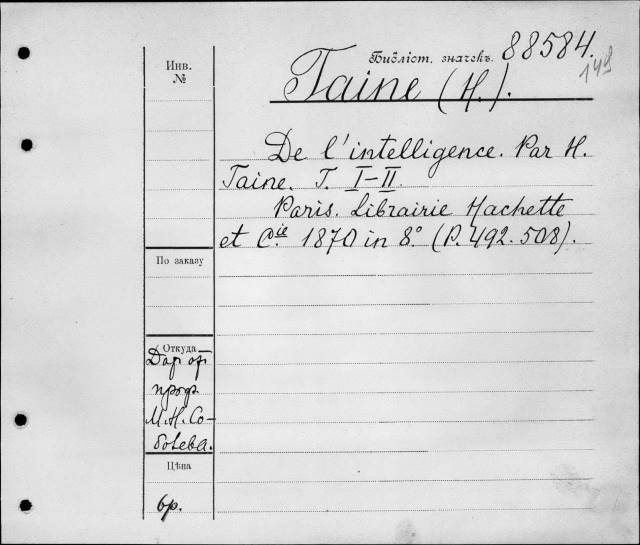 Инв. №
Библіот. значекъ. 88584.
149
Taine (H.).
De l'intelligence. Par H.
Taine. T. I-II.
Paris. Librairie Hachette
et C.ie 1870 in 8.º (P. 492. 508).
По заказу
Откуда
Дар от
проф.
М. Н. Со-
болева.
Цѣна
6р.